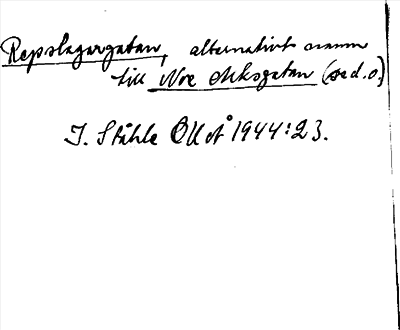 Repslagargatan, alternativt namn
till Nve Eksgatan (se d.o.)
I. Ståhle OUoÅ 1944:23.